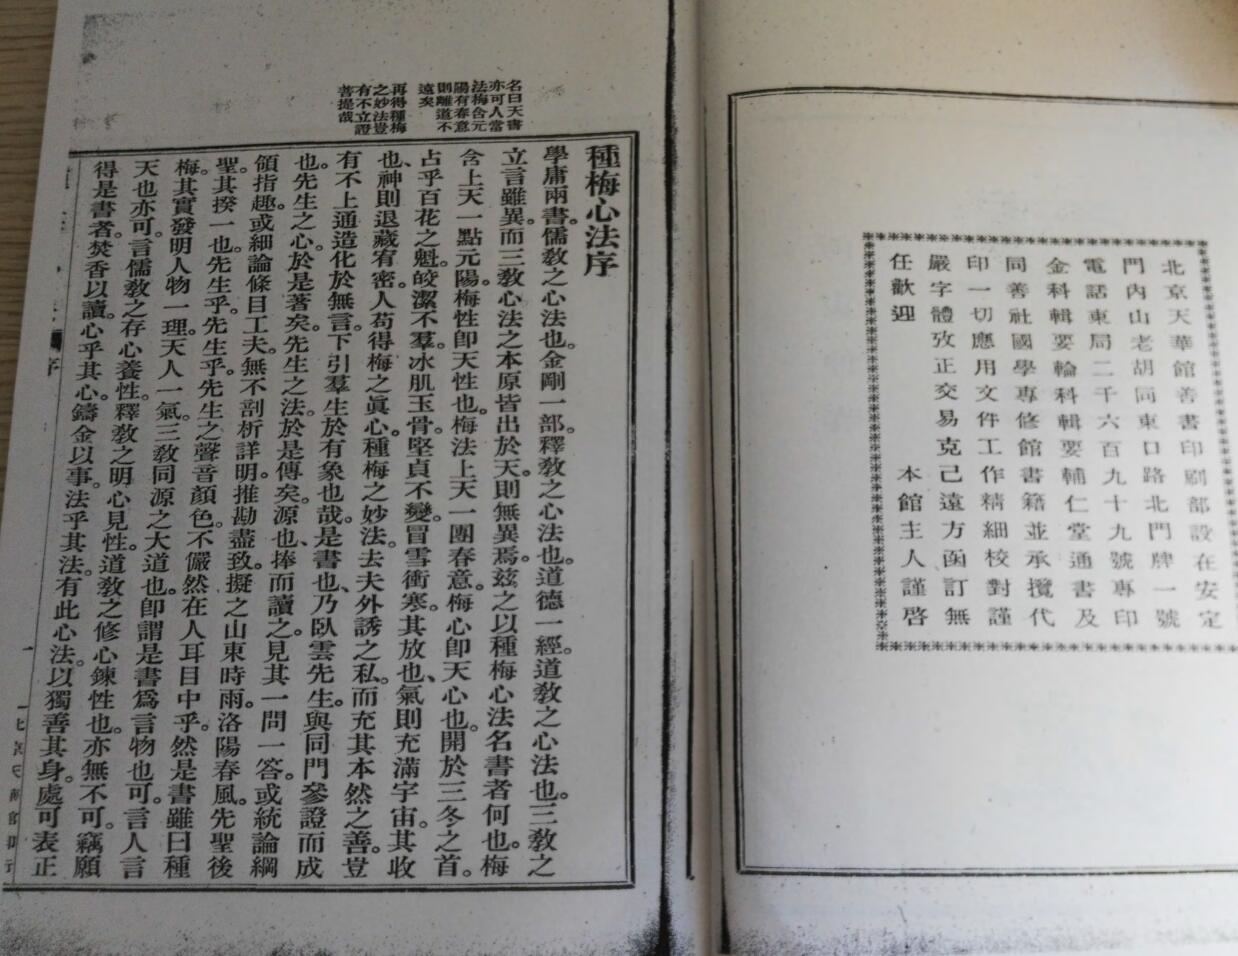 北京天華館善書印刷部設在安定
門內山老胡同東口路北門牌一號
電話東局二千六百九十九號專印
金科輯要輪科輯要輔仁堂通書及
同善社國學專修館書籍並承攬代
印一切應用文件工作精細校對謹
嚴字體攷正交易克己遠方函訂無
任歡迎 本館主人謹啓
名曰天書
亦可人當
法梅含元
陽有春意
則離道不
遠矣
再得種梅
之妙法豈
有不立證
菩提哉
種梅心法序
學庸兩書。儒教之心法也。金剛一部。釋教之心法也。道德一經。道教之心法也。三教之
立言雖異。而三教心法之本原皆出於天。則無異焉。茲之以種梅心法名書者何也。梅
含上天一點元陽。梅性卽天性也。梅法上天一團春意。梅心卽天心也。開於三冬之首。
占乎百花之魁。皎潔不羣。冰肌玉骨。堅貞不變。冒雪衝寒。其放也、氣則充滿宇宙。其收
也、神則退藏宥密。人苟得梅之眞心。種梅之妙法。去夫外誘之私。而充其本然之善。豈
有不上通造化於無言。下引羣生於有象也哉。是書也、乃臥雲先生。與同門參證而成
也。先生之心。於是著矣。先生之法。於是傳矣。源也、捧而讀之。見其一問一答。或統論綱
領指趣。或細論條目工夫。無不剖析詳明。推勘盡致。擬之山東時雨。洛陽春風。先聖後
聖。其揆一也。先生乎。先生乎。先生之聲音顏色。不儼然在人耳目中乎。然是書雖曰種
梅。其實發明人物一理。天人一氣。三教同源之大道也。卽謂是書爲言物也可。言人言
天也亦可。言儒教之存心養性。釋教之明心見性。道教之修心鍊性也。亦無不可。竊願
得是書者。焚香以讀。心乎其心。鑄金以事。法乎其法。有此心法。以獨善其身。處可表正
序
一
北京天華館印